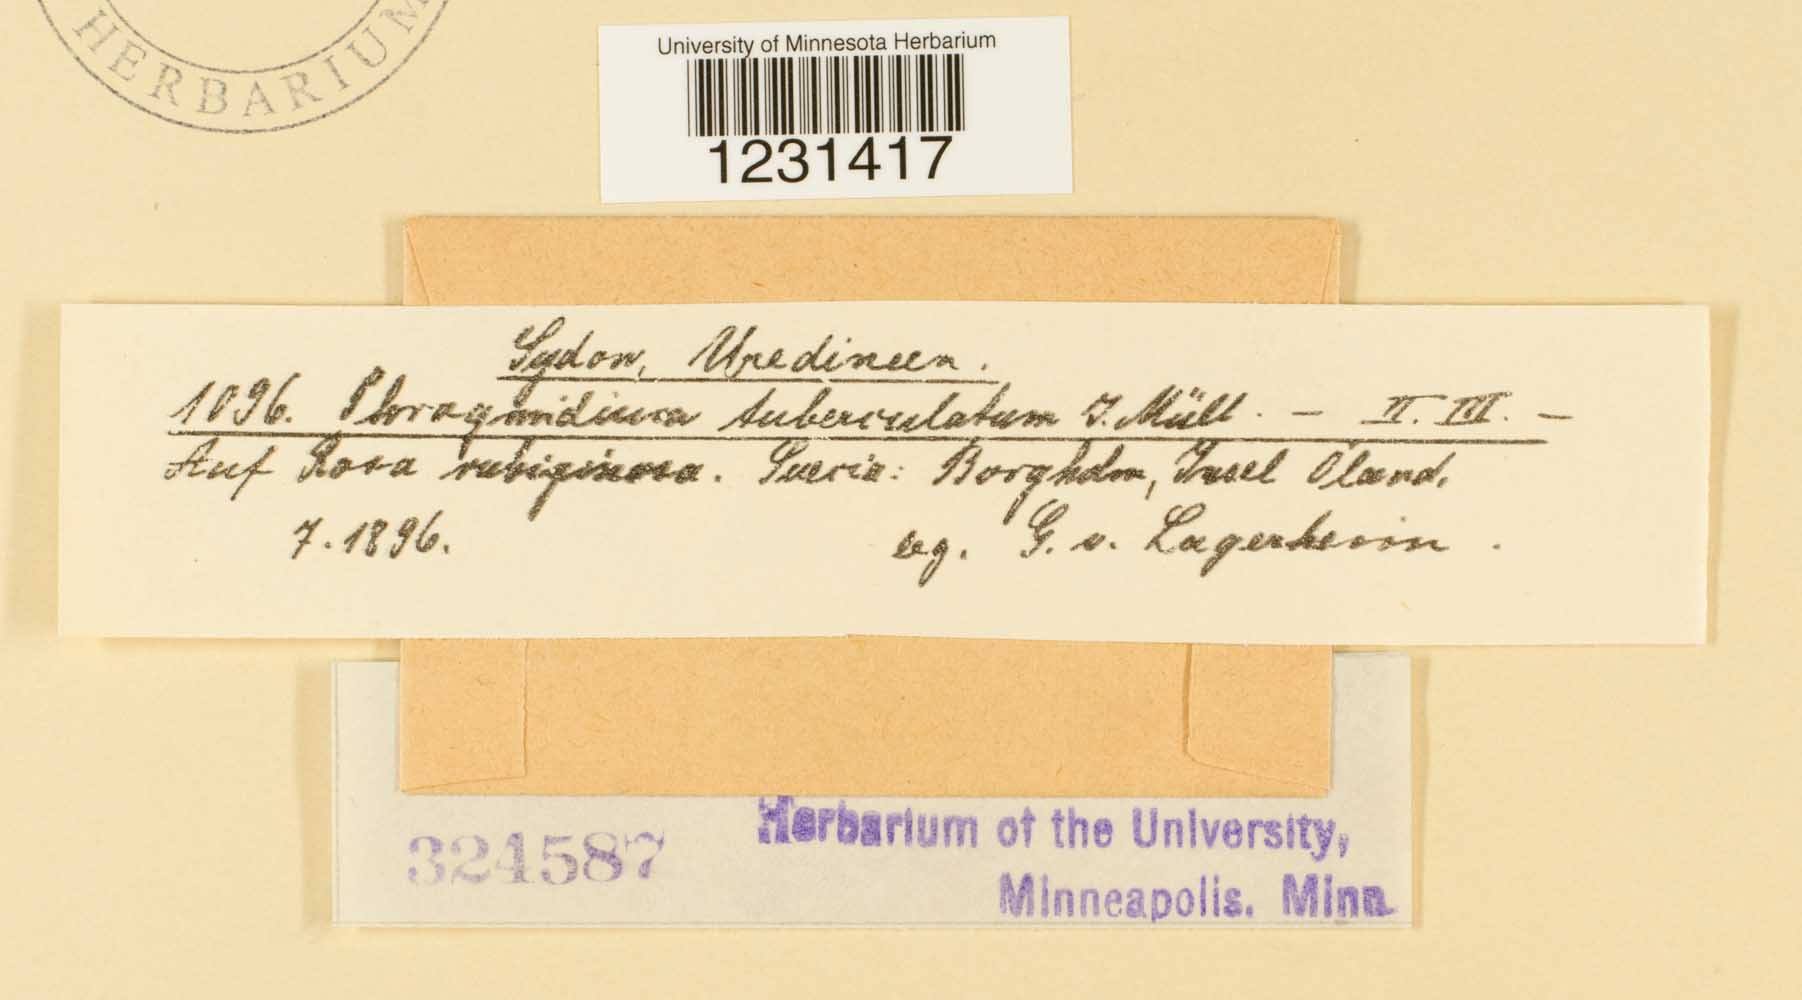 HERBARIUM
University of Minnesota Herbarium
1231417
Sydow, Uredineen.
1096. Phragmidium tuberculatum J. Müll. – II. III. –
Auf Rosa rubiginosa. Suecia: Borgholm, Insel Öland.
7.1896. leg. G. v. Lagerheim.
324587
Herbarium of the University,
Minneapolis. Minn.